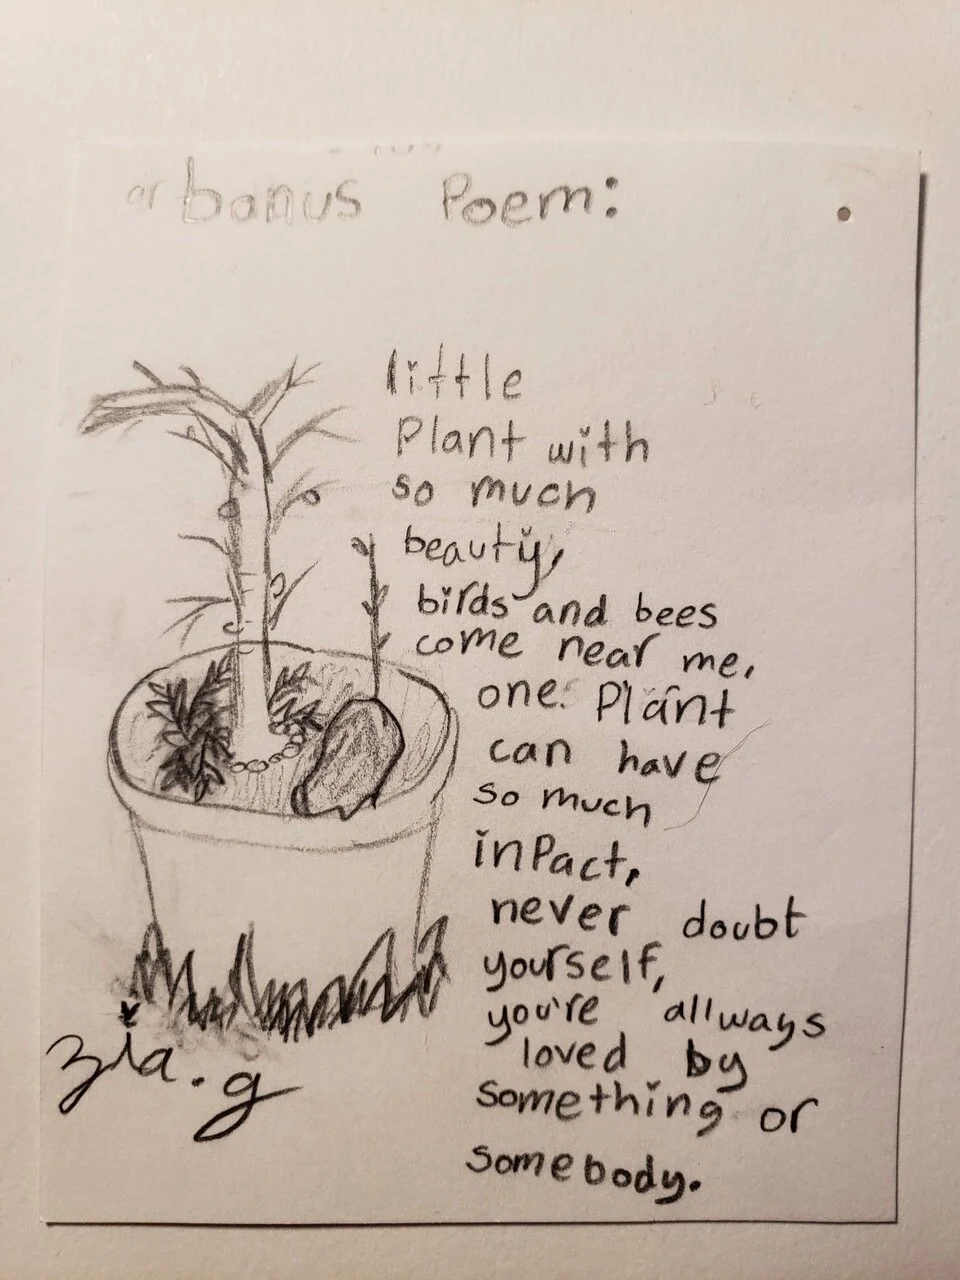 bonus Poem:
little
Plant with
so much
beauty,
birds and bees
come near me,
one Plant
can have
so much
inPact,
never doubt
yourself,
you're allways
loved by
something or
somebody.
zia.g